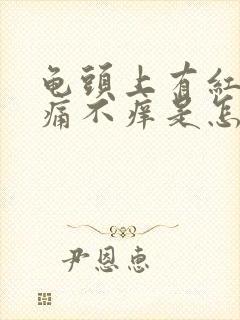 龟頭上有紅
痛不痒是怎
尹恩惠